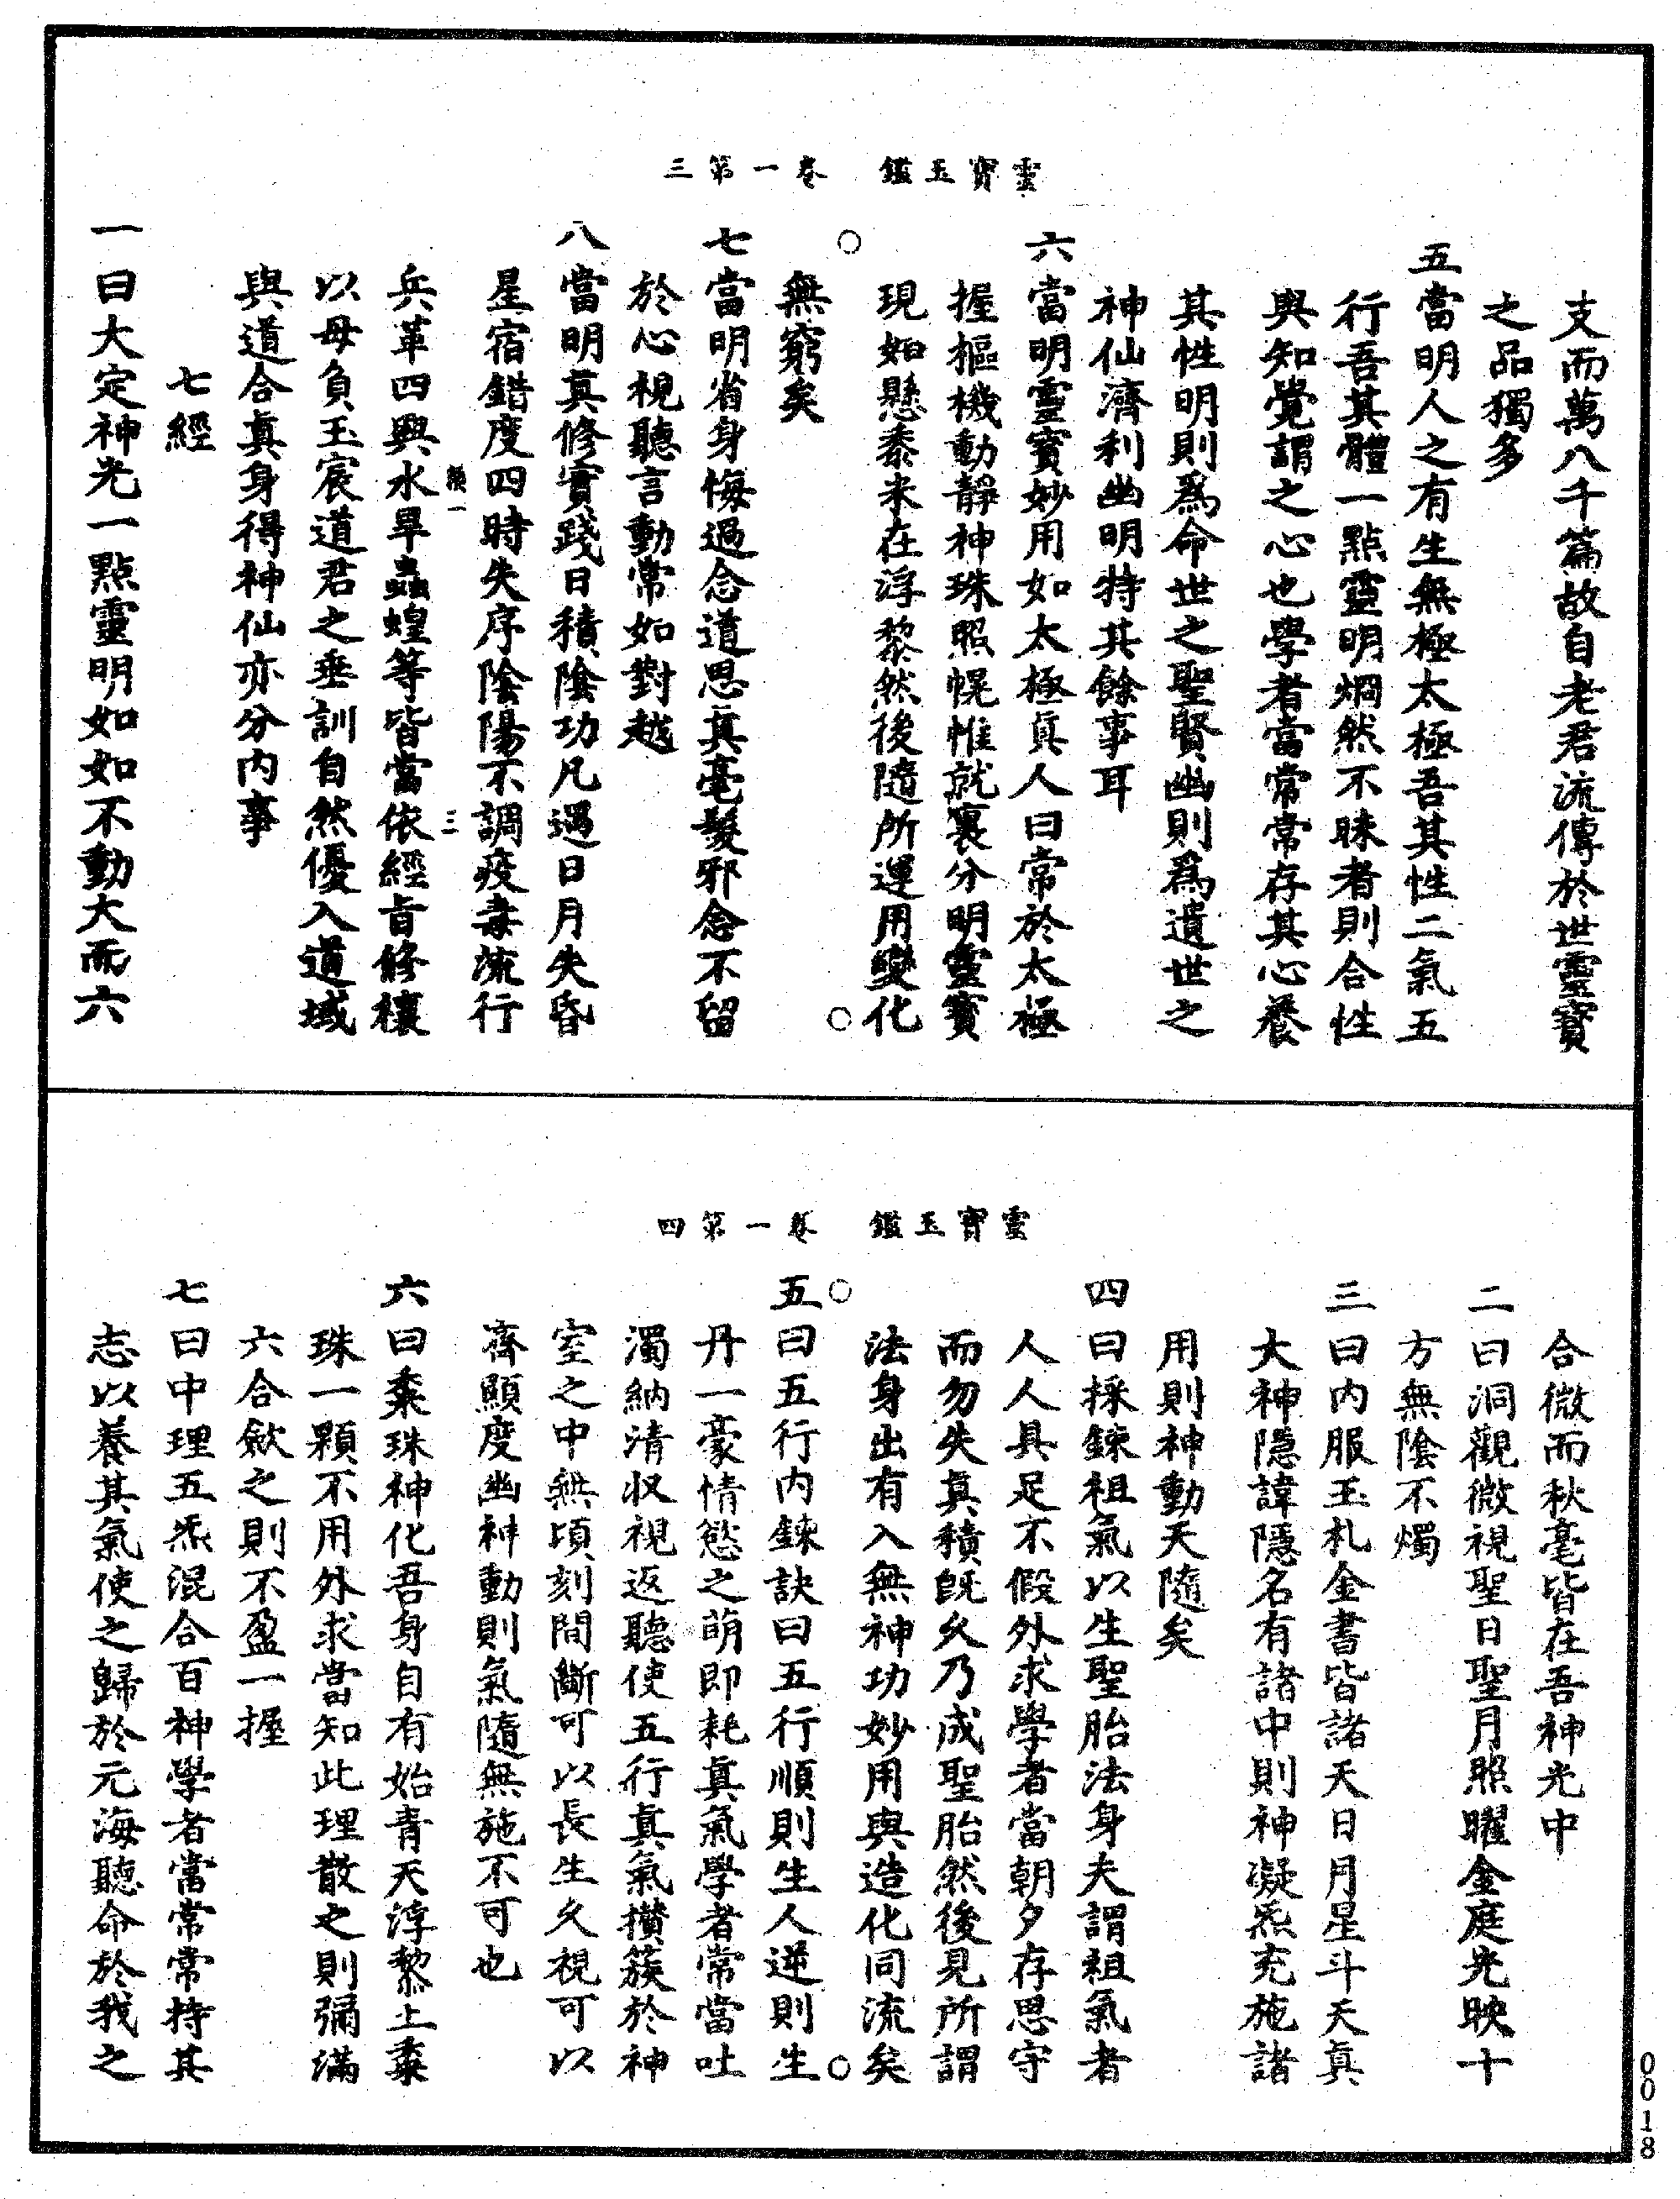 靈寶玉鑑　卷一第三
支而萬八千篇故自老君流傳於世靈寶
之品獨多
五當明人之有生無極太極吾其性二氣五
行吾其體一點靈明烱然不昧者則合性
與知覺謂之心也學者當常常存其心養
其性明則爲命世之聖賢幽則爲遺世之
神仙濟利幽明特其餘事耳
六當明靈寶妙用如太極真人曰常於太極
握樞機動靜神珠照幌惟就裏分明靈寶
現如懸黍米在浮黎然後隨所運用變化
無窮矣
七當明省身悔過念道思真毫髮邪念不留
於心視聽言動常如對越
八當明真修實踐日積陰功凡遇日月失昏
星宿錯度四時失序陰陽不調疫毒流行
兵革四興水旱蟲蝗等皆當依經旨修禳
以毋負玉宸道君之垂訓自然優入道域
與道合真身得神仙亦分內事
七經
一曰大定神光一點靈明如如不動大而六
三
靈寶玉鑑　卷一第四
合微而秋毫皆在吾神光中
二曰洞觀微視聖日聖月照曜金庭光映十
方無陰不燭
三曰內服玉札金書皆諸天日月星斗天真
大神隱諱隱名有諸中則神凝炁充施諸
用則神動天隨矣
四曰採鍊祖氣以生聖胎法身夫謂祖氣者
人人具足不假外求學者當朝夕存思守
而勿失真積既久乃成聖胎然後見所謂
法身出有入無神功妙用與造化同流矣
五曰五行內鍊訣曰五行順則生人逆則生
丹一毫情慾之萌即耗真氣學者常當吐
濁納清收視返聽使五行真氣攢簇於神
室之中無頃刻間斷可以長生久視可以
齊顯度幽神動則氣隨無施不可也
六曰黍珠神化吾身自有始青天浮黎土黍
珠一顆不用外求當知此理散之則彌滿
六合歛之則不盈一握
七曰中理五炁混合百神學者當常常持其
志以養其氣使之歸於元海聽命於我之
0018